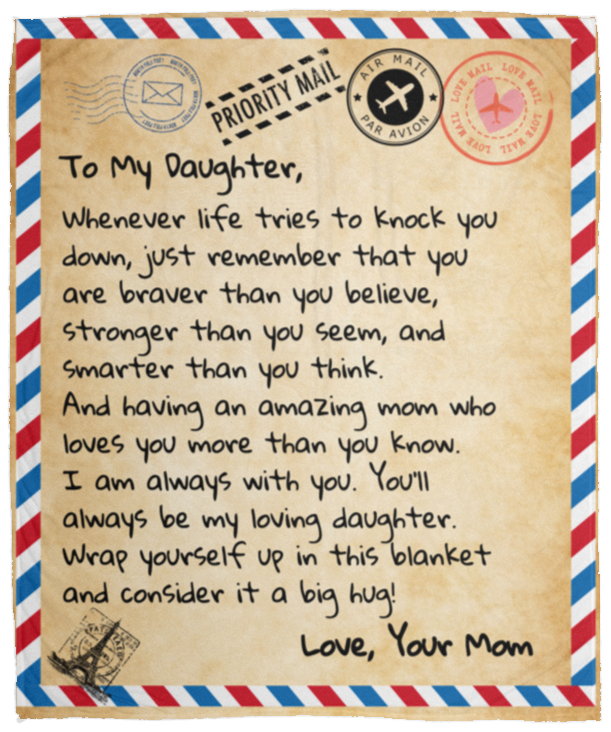 NORTH POLE POST
PRIORITY MAIL
AIR MAIL
PAR AVION
LOVE MAIL LOVE MAIL LOVE MAIL LOVE MAIL
To My Daughter,
Whenever life tries to knock you
down, just remember that you
are braver than you believe,
stronger than you seem, and
smarter than you think.
And having an amazing mom who
loves you more than you know.
I am always with you. You'll
always be my loving daughter.
Wrap yourself up in this blanket
and consider it a big hug!
Love, Your Mom